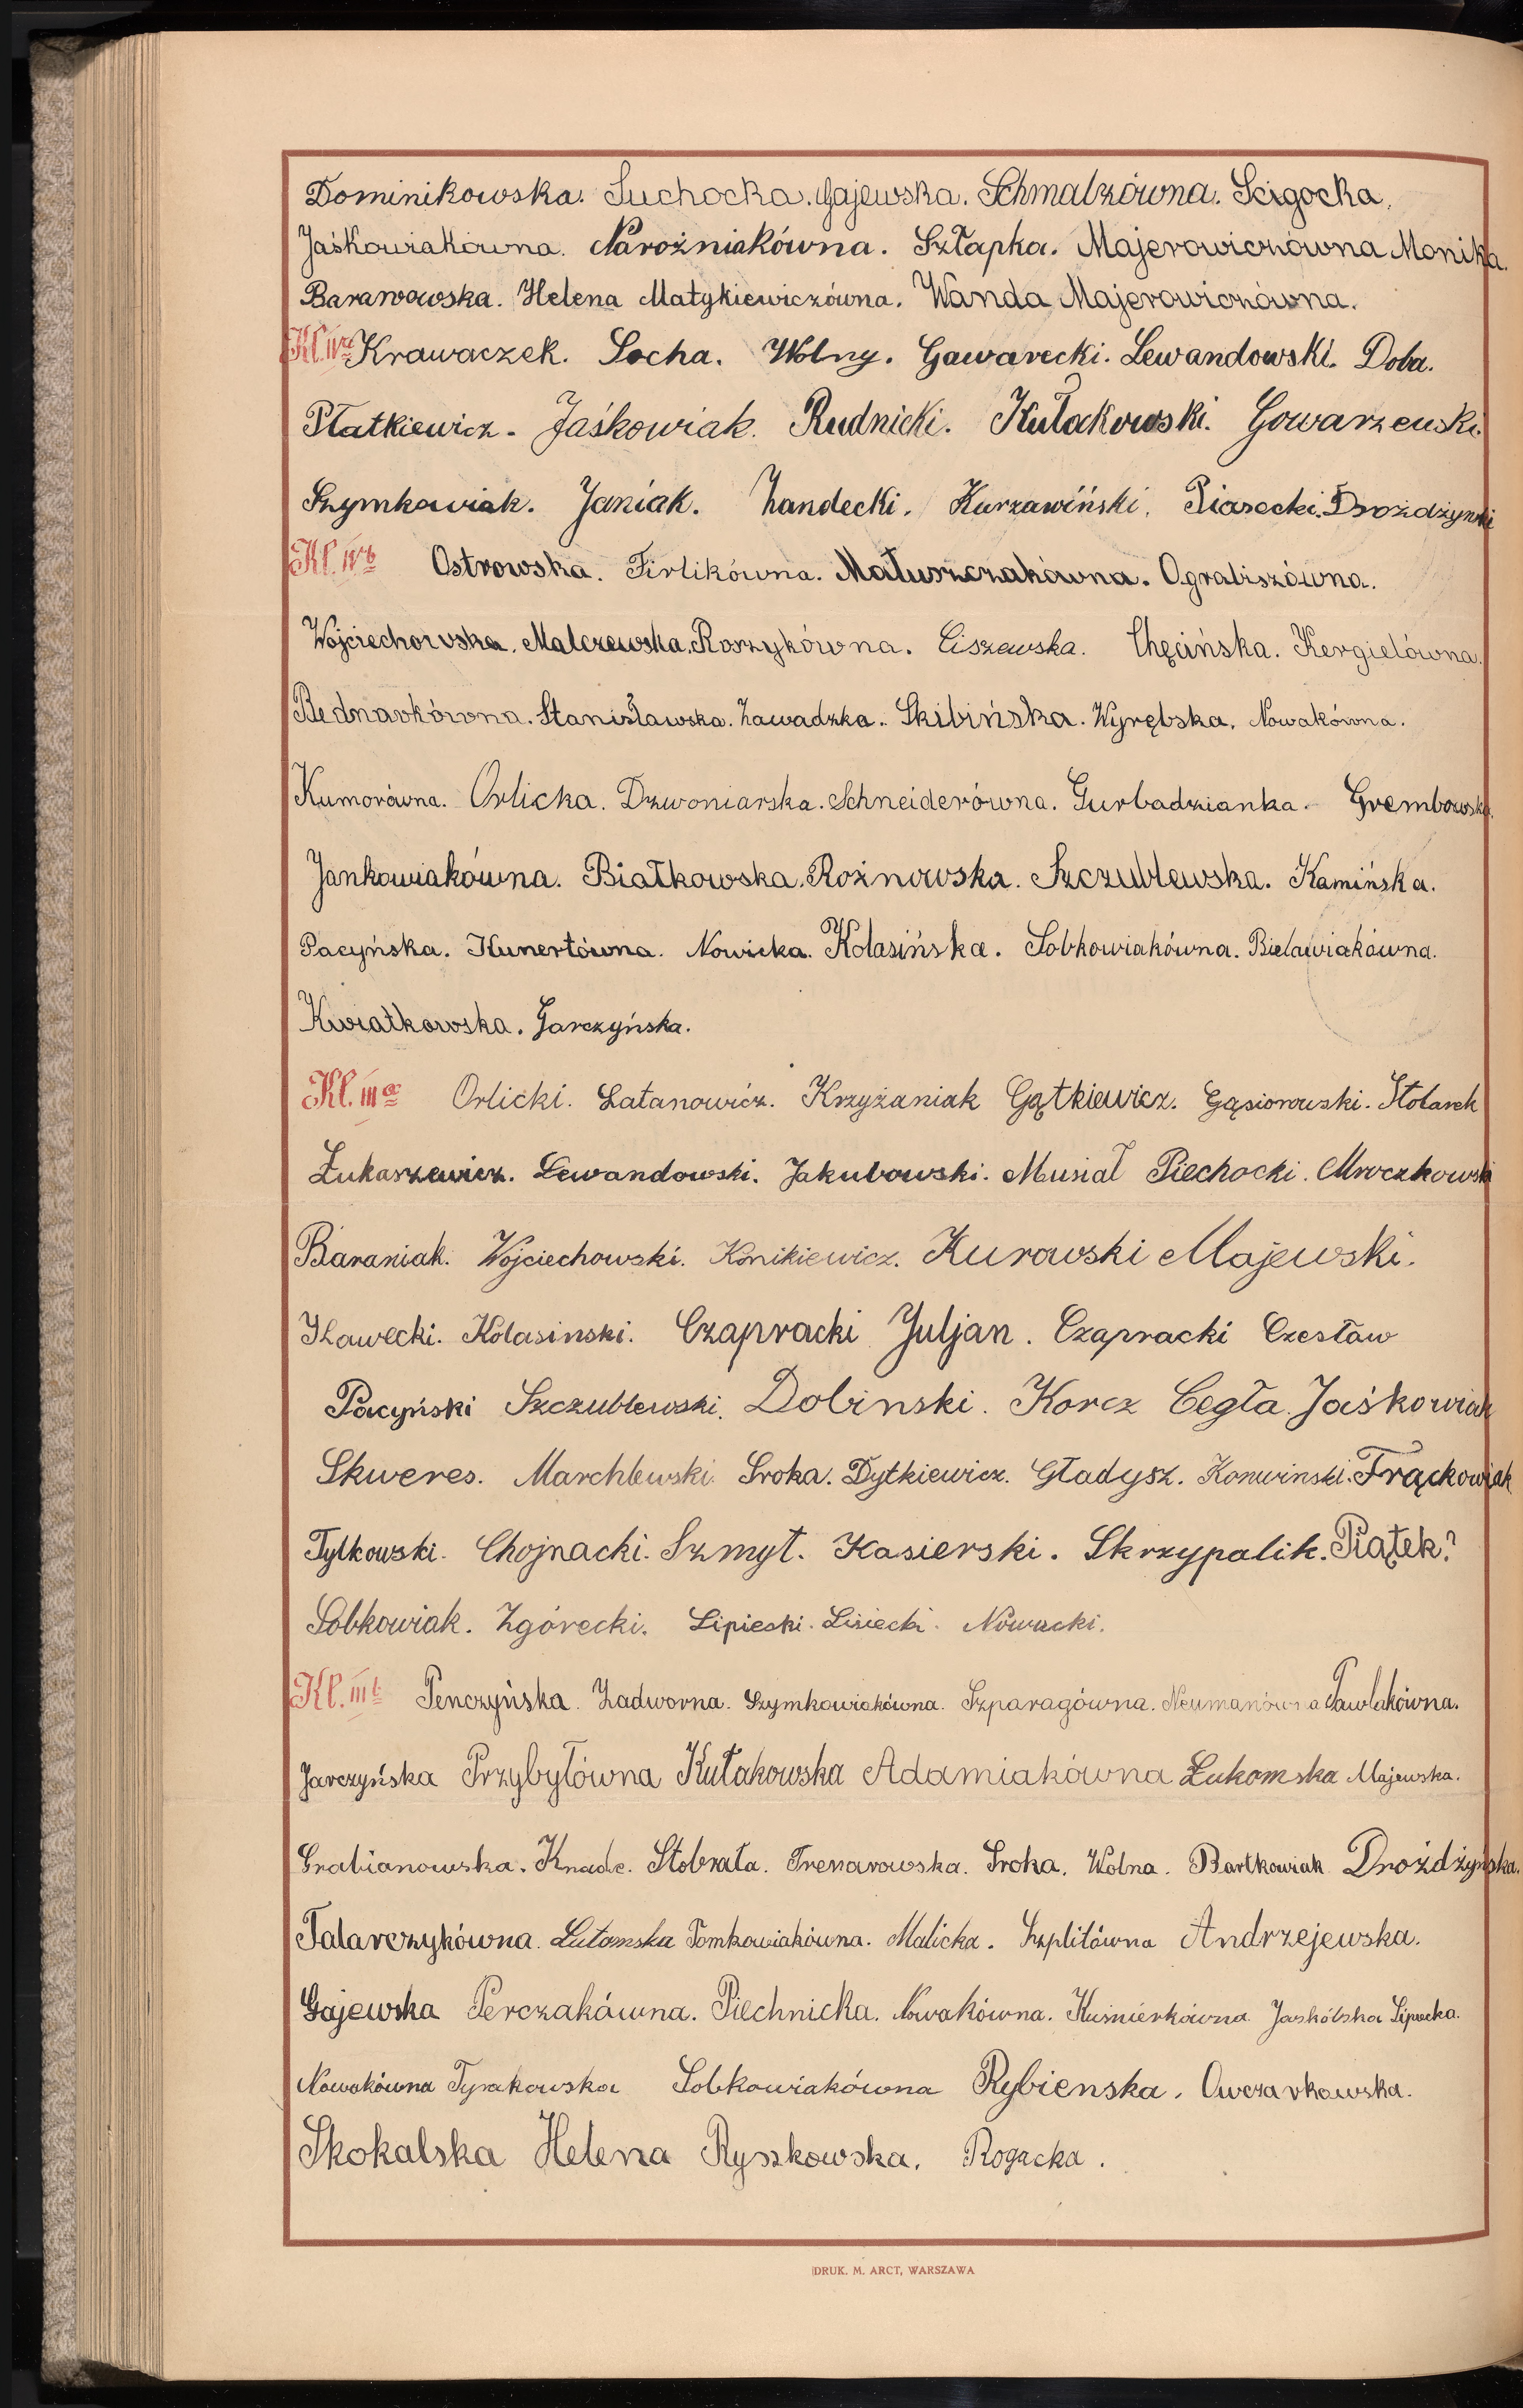 Dominikowska. Suchocka. Gajewska. Schmalzówna. Ścigocka.
Jaśkowiakówna. Narożniakówna. Szłapka. Majerowiczówna Monika.
Baranowska. Helena Matykiewiczówna. Wanda Majerowiczówna.
Kl. IVa Krawaczek. Socha. Wolny. Gawarecki. Lewandowski. Doba.
Płatkiewicz. Jaśkowiak. Rudnicki. Kułakowski. Gowarzewski.
Szymkowiak. Janiak. Zandecki. Kurzawiński. Piasecki. Drożdżyński
Kl. IVb Ostrowska. Firlikówna. Matuszczakówna. Ograbiszówna.
Wojciechowska. Malczewska. Roszykówna. Ciszewska. Chęcińska. Kergielówna.
Bednarkówna. Stanisławska. Zawadzka. Skibińska. Wyrębska. Nowakówna.
Kumorówna. Orlicka. Dzwoniarska. Schneiderówna. Gurbadzianka. Grembowska.
Jankowiakówna. Białkowska. Rożnowska. Szczublewska. Kamińska.
Pacyńska. Kunertówna. Nowicka. Kolasińska. Sobkowiakówna. Bielawiakówna.
Kwiatkowska. Garczyńska.
Kl. IIIa Orlicki. Latanowicz. Krzyżaniak Gątkiewicz. Gąsiorowski. Stolarek
Łukaszewicz. Lewandowski. Jakubowski. Musiał Piechocki. Mroczkowski
Baraniak. Wojciechowski. Konikiewicz. Kurowski Majewski.
Iławecki. Kolasinski. Czapracki Juljan. Czapracki Czesław
Pacyński Szczublewski. Dobinski. Korcz Cegła. Jaśkowiak
Skweres. Marchlewski. Sroka. Dytkiewicz. Gładysz. Konwinski. Frąckowiak
Tylkowski. Chojnacki. Szmyt. Kasierski. Skrzypalik. Piątek?
Sobkowiak. Zgórecki. Lipieski. Lisiecki. Nowacki.
Kl. IIIb Penczyńska. Zadworna. Szymkowiakówna. Szparagówna. Neumanówna Pawlakówna.
Jarczyńska Przybyłówna Kułakowska Adamiakówna Łukomska Majewska.
Grabianowska. Knade. Stobrała. Trenarowska. Sroka. Wolna. Bartkowiak Drożdżyńska.
Talarczykówna. Lutomska Tomkowiakówna. Malicka. Szplitówna Andrzejewska.
Gajewska Perczakówna. Piechnicka. Nowakówna. Kuśnierkówna Jaskólska Lipecka.
Nowakówna Tyrakowska Sobkowiakówna Rybienska. Owczarkowska.
Skokalska Helena Ryszkowska. Rogacka.
DRUK. M. ARCT, WARSZAWA